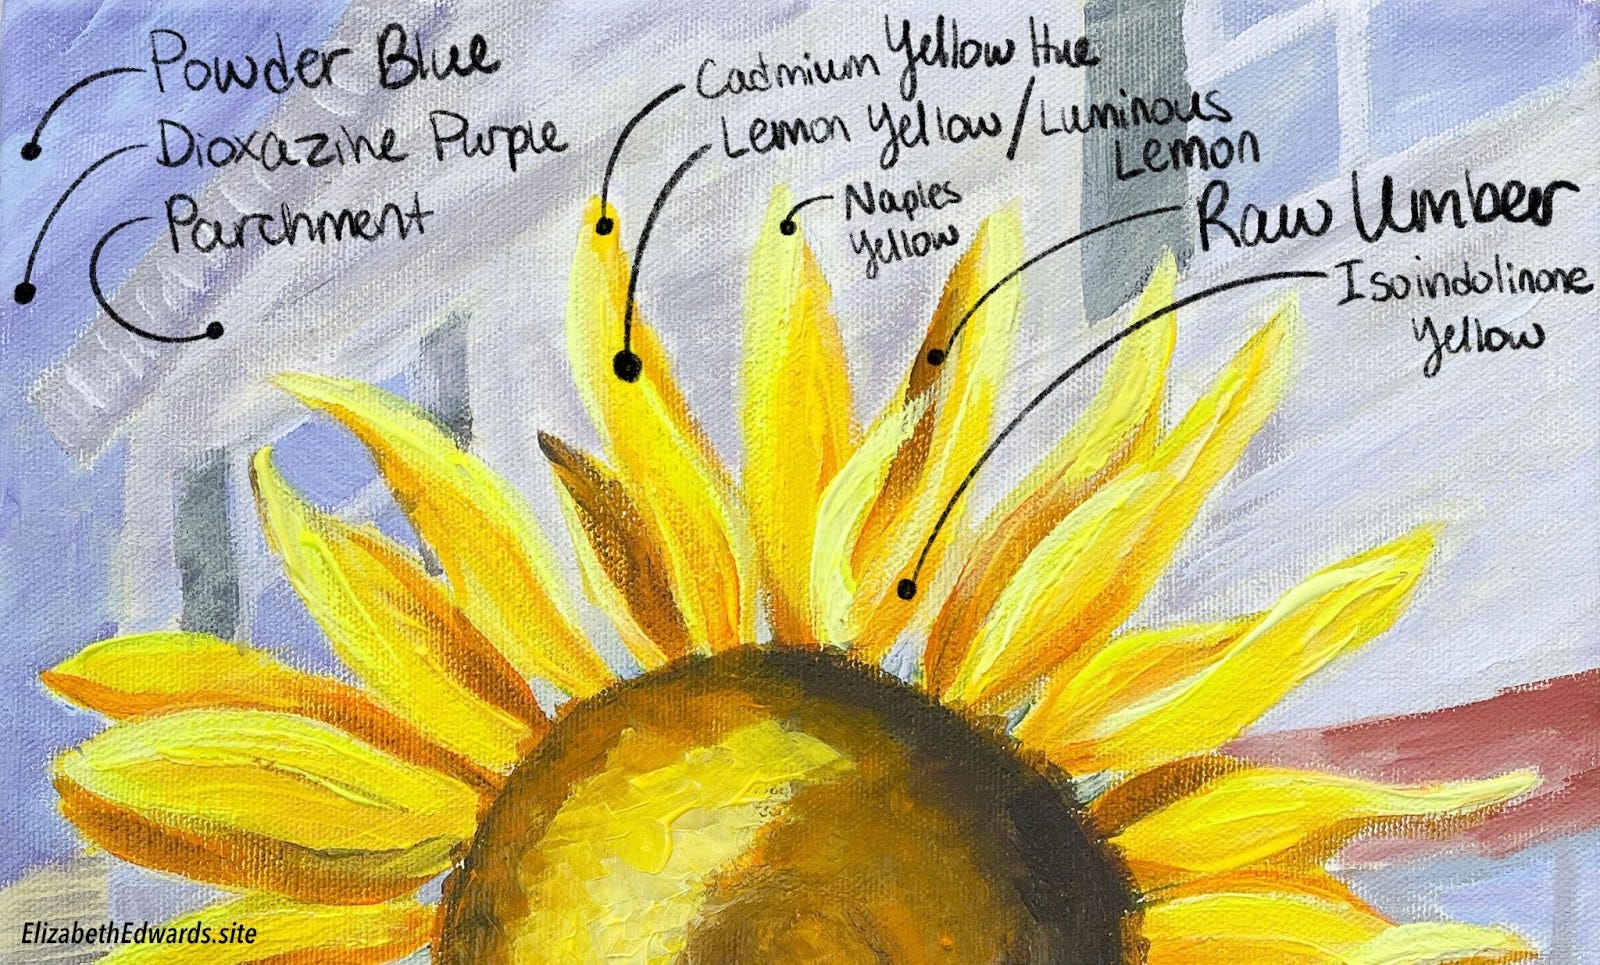 Powder Blue
Dioxazine Purple
Parchment
Cadmium Yellow Hue
Lemon Yellow/Luminous
Lemon
Naples
Yellow
Raw Umber
Isoindolinone
Yellow
ElizabethEdwards.site